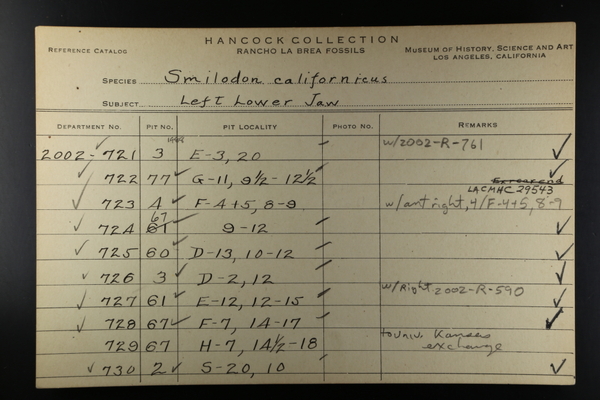 HANCOCK COLLECTION
REFERENCE CATALOG RANCHO LA BREA FOSSILS MUSEUM OF HISTORY, SCIENCE AND ART
LOS ANGELES, CALIFORNIA
SPECIES Smilodon californicus
SUBJECT Left Lower Jaw
DEPARTMENT NO. PIT NO. PIT LOCALITY PHOTO NO. REMARKS
2002-721 3 E-3, 20 w/2002-R-761
722 77 G-11, 9½-12½
LACMHC 29543
723 4 F-4+5, 8-9 w/ant right, 4/F-4+5, 8-9
67
724 61 9-12
725 60 D-13, 10-12
726 3 D-2, 12
727 61 E-12, 12-15 w/Right 2002-R-590
728 67 F-7, 14-17
729 67 H-7, 14½-18 to Univ. Kansas
exchange
730 2 S-20, 10